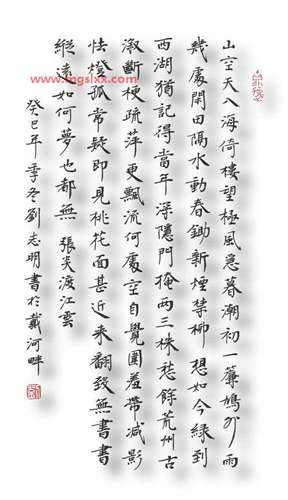 山空天入海倚樓望極風急暮潮初一簾鳩外雨
幾處閑田隔水動春鋤新煙禁柳想如今綠到
西湖猶記得當年深隱門掩兩三株愁餘荒州古
漵斷梗疏萍更飄流何處空自覺圍羞帶減影
怯燈孤常疑即見桃花面甚近來翻致無書書
縱遠如何夢也都無 張炎渡江雲
癸巳年季冬劉志明書於戴河畔
www.mgslxx.com